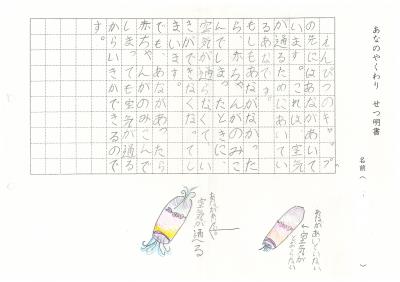 あなのやくわり　せつ明書
名前（　　）
えんぴつのキャップ
の先にはあながあいて
います。これは、空気
が通るためにあいてい
るあなです。
もしもあながなかった
ら、赤ちゃんがのみこ
んでしまったときに、
空気が通らなくて、い
きができなくなってし
まいます。
あながあったら
赤ちゃんがのみこんで
しまっても空気が通る
からいきができるので
す。
あながあいていない
←空気が
とおらない
あながあいている
空気が通る